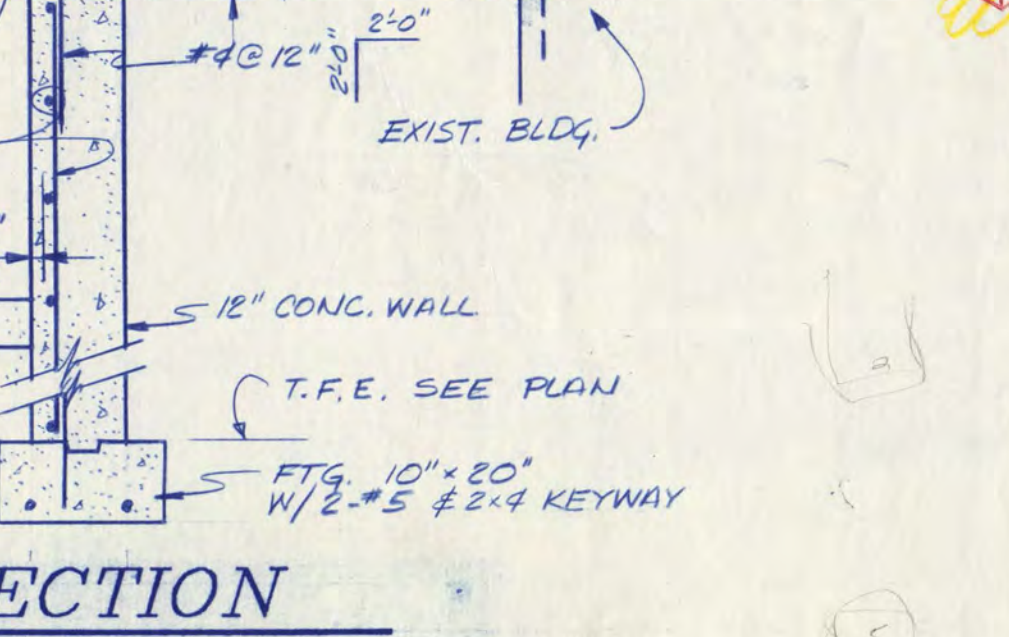 2'-0"
#4@12"
2'-0"
EXIST. BLDG.
12" CONC. WALL
T.F.E. SEE PLAN
FTG. 10"x20"
W/2-#5 & 2x4 KEYWAY
ECTION